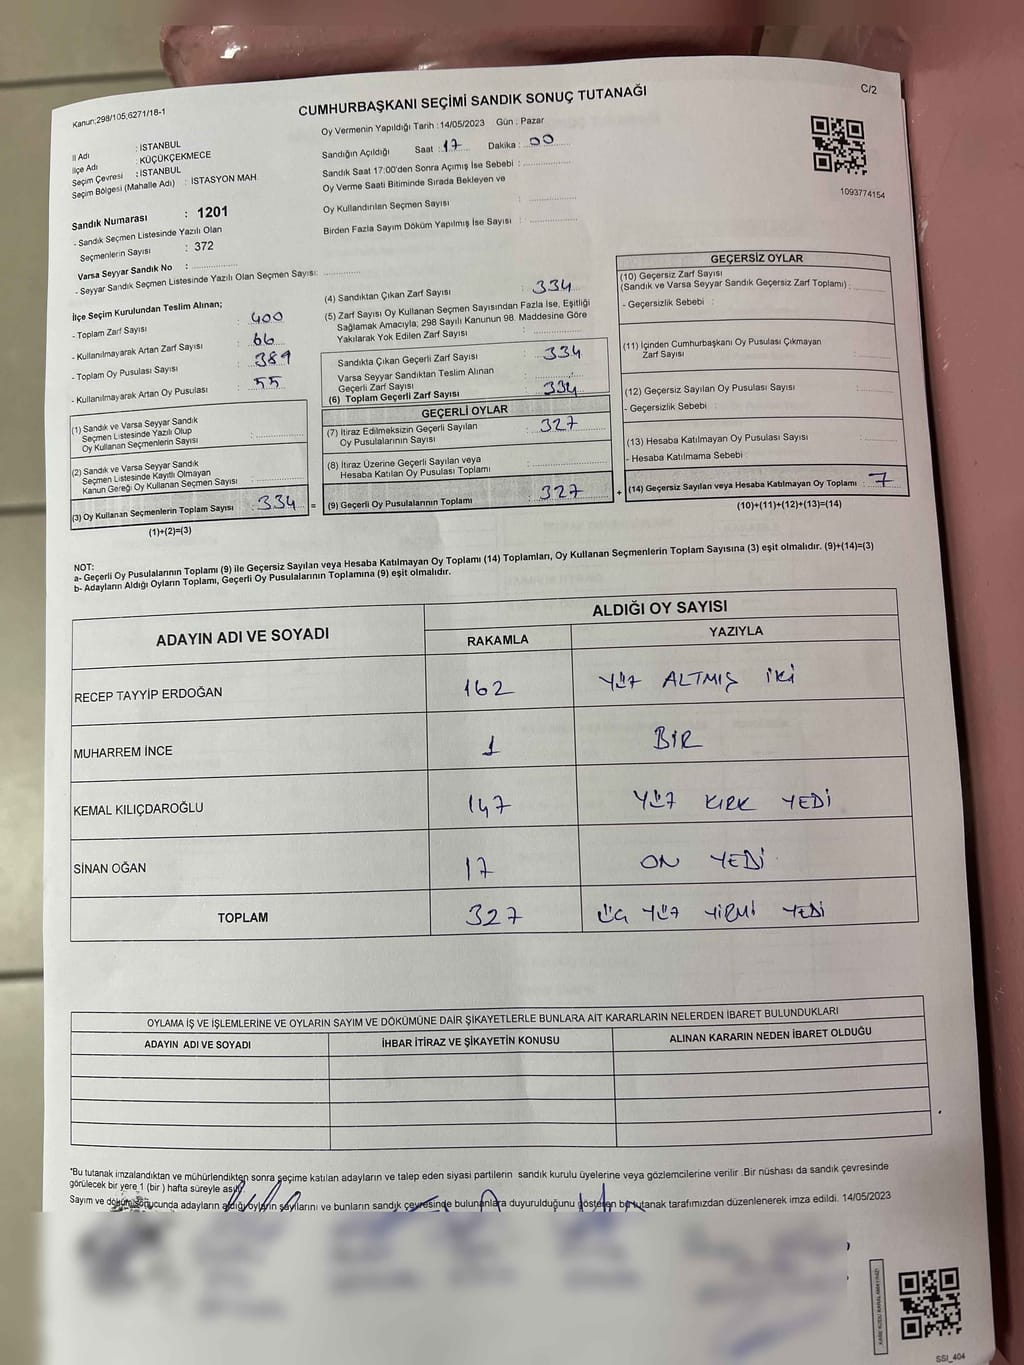 Kanun:298/105;6271/18-1
CUMHURBAŞKANI SEÇİMİ SANDIK SONUÇ TUTANAĞI
C/2
İl Adı : İSTANBUL
İlçe Adı : KÜÇÜKÇEKMECE
Seçim Çevresi : İSTANBUL
Seçim Bölgesi (Mahalle Adı) : İSTASYON MAH.
Oy Vermenin Yapıldığı Tarih :14/05/2023 Gün : Pazar
Sandığın Açıldığı Saat : 17 Dakika : 00
Sandık Saat 17:00'den Sonra Açımış İse Sebebi :
Oy Verme Saati Bitiminde Sırada Bekleyen ve
Oy Kullandırılan Seçmen Sayısı :
Birden Fazla Sayım Döküm Yapılmış İse Sayısı :
1093774154
Sandık Numarası : 1201
- Sandık Seçmen Listesinde Yazılı Olan
Seçmenlerin Sayısı : 372
Varsa Seyyar Sandık No :
- Seyyar Sandık Seçmen Listesinde Yazılı Olan Seçmen Sayısı:
İlçe Seçim Kurulundan Teslim Alınan;
- Toplam Zarf Sayısı : 400
- Kullanılmayarak Artan Zarf Sayısı : 66
- Toplam Oy Pusulası Sayısı : 389
- Kullanılmayarak Artan Oy Pusulası : 55
(1) Sandık ve Varsa Seyyar Sandık
Seçmen Listesinde Yazılı Olup
Oy Kullanan Seçmenlerin Sayısı :
(2) Sandık ve Varsa Seyyar Sandık
Seçmen Listesinde Kayıtlı Olmayan
Kanun Gereği Oy Kullanan Seçmen Sayısı :
(3) Oy Kullanan Seçmenlerin Toplam Sayısı : 334 =
(1)+(2)=(3)
(4) Sandıktan Çıkan Zarf Sayısı : 334
(5) Zarf Sayısı Oy Kullanan Seçmen Sayısından Fazla İse, Eşitliği
Sağlamak Amacıyla; 298 Sayılı Kanunun 98. Maddesine Göre
Yakılarak Yok Edilen Zarf Sayısı :
Sandıkta Çıkan Geçerli Zarf Sayısı : 334
Varsa Seyyar Sandıktan Teslim Alınan
Geçerli Zarf Sayısı :
(6) Toplam Geçerli Zarf Sayısı : 334
GEÇERLİ OYLAR
(7) İtiraz Edilmeksizin Geçerli Sayılan
Oy Pusulalarının Sayısı : 327
(8) İtiraz Üzerine Geçerli Sayılan veya
Hesaba Katılan Oy Pusulası Toplamı :
(9) Geçerli Oy Pusulalarının Toplamı : 327 +
GEÇERSİZ OYLAR
(10) Geçersiz Zarf Sayısı
(Sandık ve Varsa Seyyar Sandık Geçersiz Zarf Toplamı) :
- Geçersizlik Sebebi :
(11) İçinden Cumhurbaşkanı Oy Pusulası Çıkmayan
Zarf Sayısı :
(12) Geçersiz Sayılan Oy Pusulası Sayısı :
- Geçersizlik Sebebi :
(13) Hesaba Katılmayan Oy Pusulası Sayısı :
- Hesaba Katılmama Sebebi :
(14) Geçersiz Sayılan veya Hesaba Katılmayan Oy Toplamı : 7
(10)+(11)+(12)+(13)=(14)
NOT:
a- Geçerli Oy Pusulalarının Toplamı (9) ile Geçersiz Sayılan veya Hesaba Katılmayan Oy Toplamı (14) Toplamları, Oy Kullanan Seçmenlerin Toplam Sayısına (3) eşit olmalıdır. (9)+(14)=(3)
b- Adayların Aldığı Oyların Toplamı, Geçerli Oy Pusulalarının Toplamına (9) eşit olmalıdır.
ADAYIN ADI VE SOYADI
ALDIĞI OY SAYISI
RAKAMLA YAZIYLA
RECEP TAYYİP ERDOĞAN 162 YÜZ ALTMIŞ İKİ
MUHARREM İNCE 1 BİR
KEMAL KILIÇDAROĞLU 147 YÜZ KIRK YEDİ
SİNAN OĞAN 17 ON YEDİ
TOPLAM 327 ÜÇ YÜZ YİRMİ YEDİ
OYLAMA İŞ VE İŞLEMLERİNE VE OYLARIN SAYIM VE DÖKÜMÜNE DAİR ŞİKAYETLERLE BUNLARA AİT KARARLARIN NELERDEN İBARET BULUNDUKLARI
ADAYIN ADI VE SOYADI İHBAR İTİRAZ VE ŞİKAYETİN KONUSU ALINAN KARARIN NEDEN İBARET OLDUĞU
*Bu tutanak imzalandıktan ve mühürlendikten sonra seçime katılan adayların ve talep eden siyasi partilerin sandık kurulu üyelerine veya gözlemcilerine verilir .Bir nüshası da sandık çevresinde
görülecek bir yere 1 (bir ) hafta süreyle asılır.
Sayım ve dökümü sonucunda adayların aldığı oyların sayılarını ve bunların sandık çevresinde bulunanlara duyurulduğunu gösteren bu tutanak tarafımızdan düzenlenerek imza edildi. 14/05/2023
SSI_404